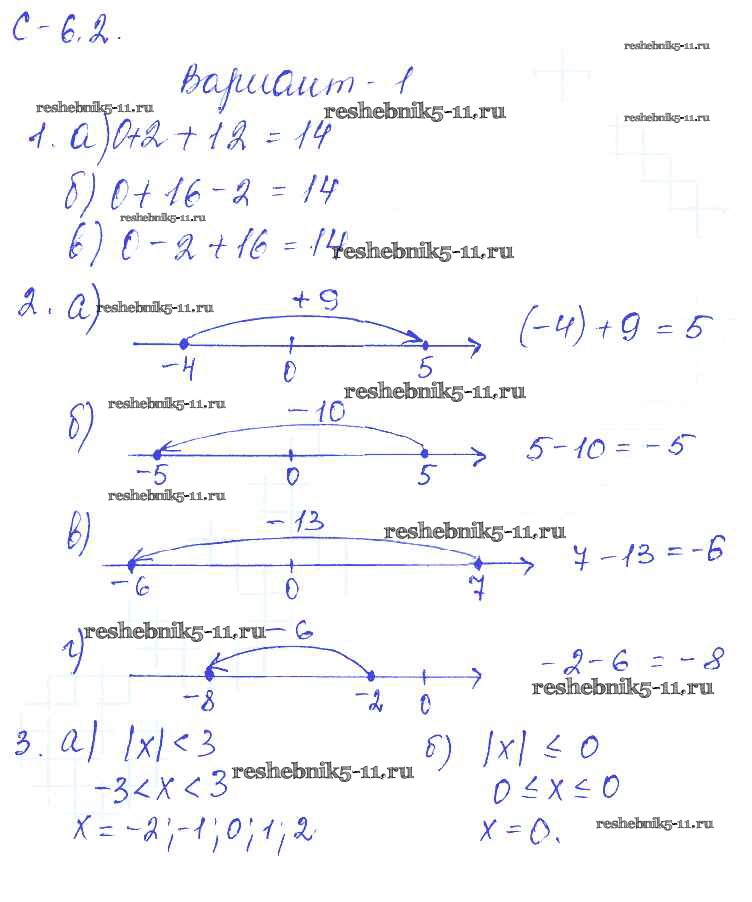 С-6.2.
reshebnik5-11.ru
Вариант-1
reshebnik5-11.ru
reshebnik5-11.ru
reshebnik5-11.ru
1. а) 0+2+12=14
б) 0+16-2=14
reshebnik5-11.ru
в) 0-2+16=14
reshebnik5-11.ru
2. а)
reshebnik5-11.ru
+9
(-4)+9=5
-4 0 5
reshebnik5-11.ru
б)
reshebnik5-11.ru
-10
5-10=-5
-5 0 5
reshebnik5-11.ru
в)
-13
reshebnik5-11.ru
7-13=-6
-6 0 7
г)
reshebnik5-11.ru
-6
-2-6=-8
-8 -2 0
reshebnik5-11.ru
3. а) |x|<3
б) |x|≤0
-3<x<3
reshebnik5-11.ru
0≤x≤0
x=-2;-1;0;1;2
x=0.
reshebnik5-11.ru